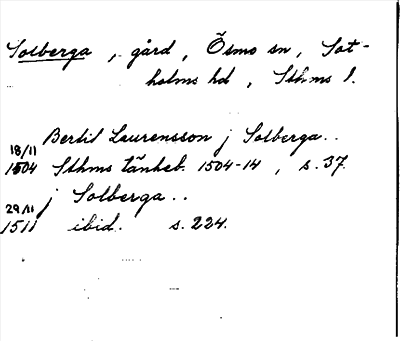 Solberga, gård, Ösmo sn, Sot-
holms hd, Sthms l.
Bertil Laurensson j Solberga..
18/11
1504 Sthms tänkeb. 1504-14, s. 37.
j Solberga..
29/11
1511 ibid. s. 224.